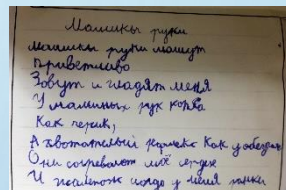 Мамины руки
Мамины руки машут
приветливо
Зовут и гладят меня
У маминых рук кожа
Как черника,
А хватательный рефлекс как у обезьян
Они согревают моё сердце
И когда у меня